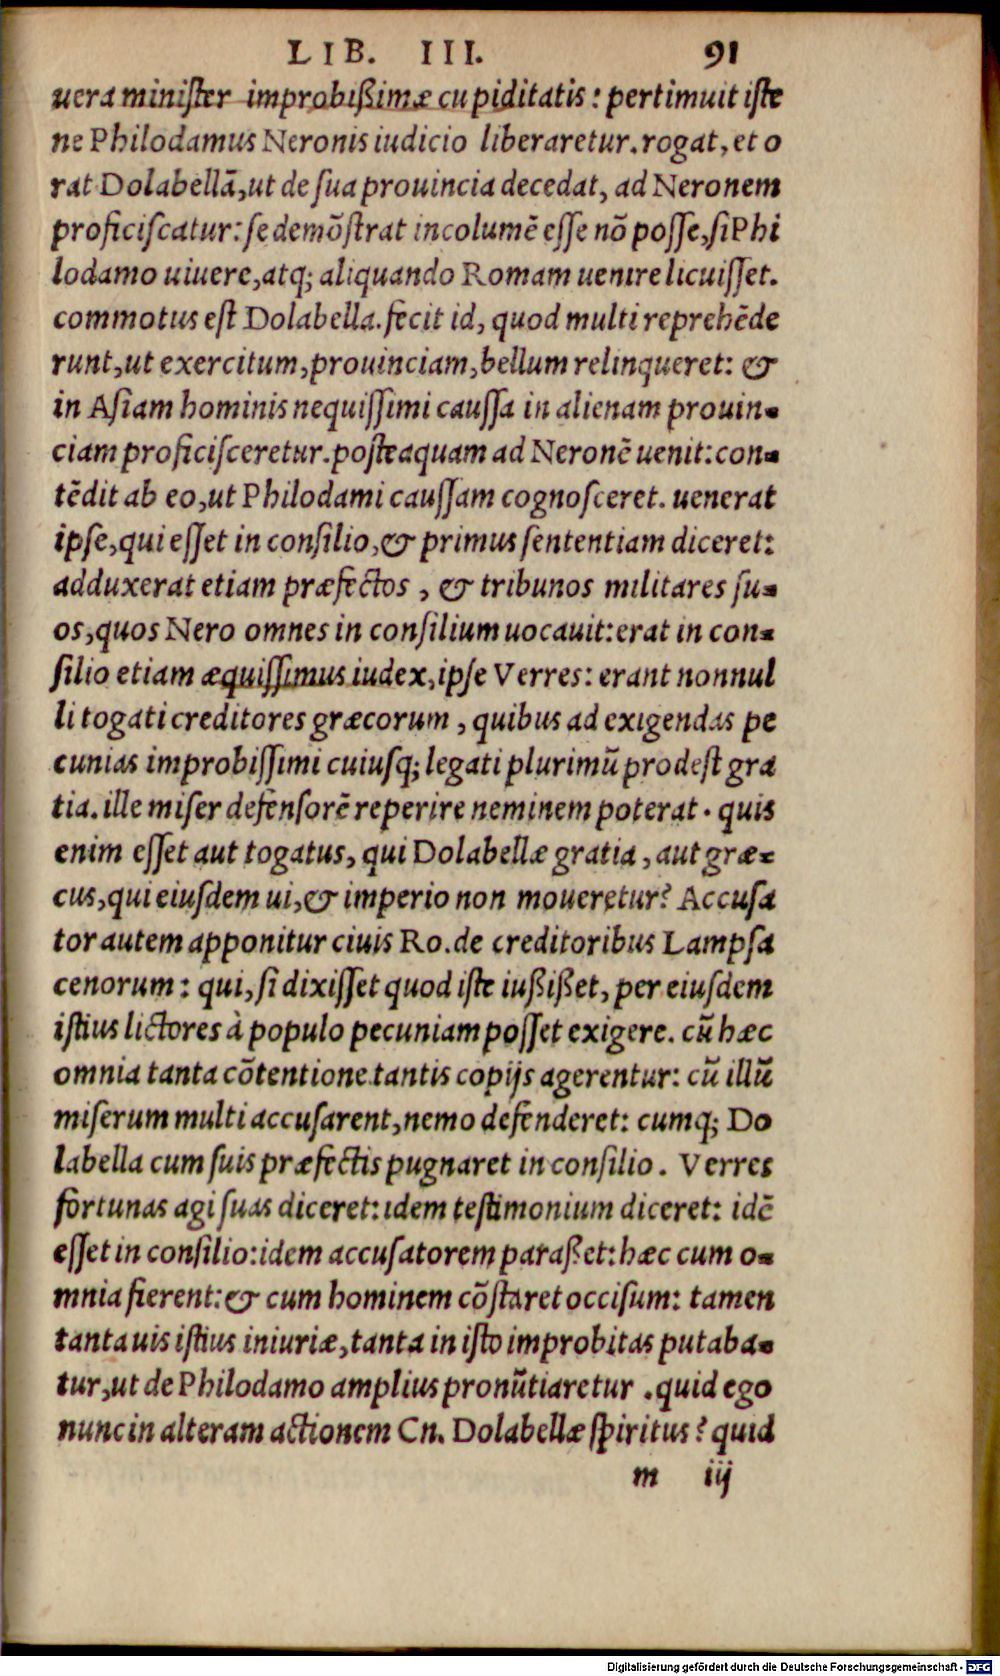 LIB. III. 91
uera minister improbißimæ cupiditatis: pertimuit iste
ne Philodamus Neronis iudicio liberaretur. rogat, et o
rat Dolabellā, ut de sua prouincia decedat, ad Neronem
proficiscatur: se demōstrat incolumē esse nō posse, si Phi
lodamo uiuere, atq; aliquando Romam uenire licuisset.
commotus est Dolabella. fecit id, quod multi reprehēde
runt, ut exercitum, prouinciam, bellum relinqueret: &
in Asiam hominis nequissimi caussa in alienam prouin-
ciam proficisceretur. posteaquam ad Neronē uenit: con-
tēdit ab eo, ut Philodami caussam cognosceret. uenerat
ipse, qui esset in consilio, & primus sententiam diceret:
adduxerat etiam præfectos, & tribunos militares su-
os, quos Nero omnes in consilium uocauit: erat in con-
silio etiam æquissimus iudex, ipse Verres: erant nonnul
li togati creditores græcorum, quibus ad exigendas pe
cunias improbissimi cuiusq; legati plurimū prodest gra
tia. ille miser defensorē reperire neminem poterat. quis
enim esset aut togatus, qui Dolabellæ gratia, aut græ-
cus, qui eiusdem ui, & imperio non moueretur? Accusa
tor autem apponitur ciuis Ro. de creditoribus Lampsa
cenorum: qui, si dixisset quod iste iußißet, per eiusdem
istius lictores à populo pecuniam posset exigere. cū hæc
omnia tanta cōtentione tantis copijs agerentur: cū illū
miserum multi accusarent, nemo defenderet: cumq; Do
labella cum suis præfectis pugnaret in consilio. Verres
fortunas agi suas diceret: idem testimonium diceret: idē
esset in consilio: idem accusatorem paraßet: hæc cum o-
mnia fierent: & cum hominem cōstaret occisum: tamen
tanta uis istius iniuriæ, tanta in isto improbitas putaba-
tur, ut de Philodamo amplius pronūtiaretur. quid ego
nunc in alteram actionem Cn. Dolabellæ spiritus? quid
m iij
Digitalisierung gefördert durch die Deutsche Forschungsgemeinschaft - DFG